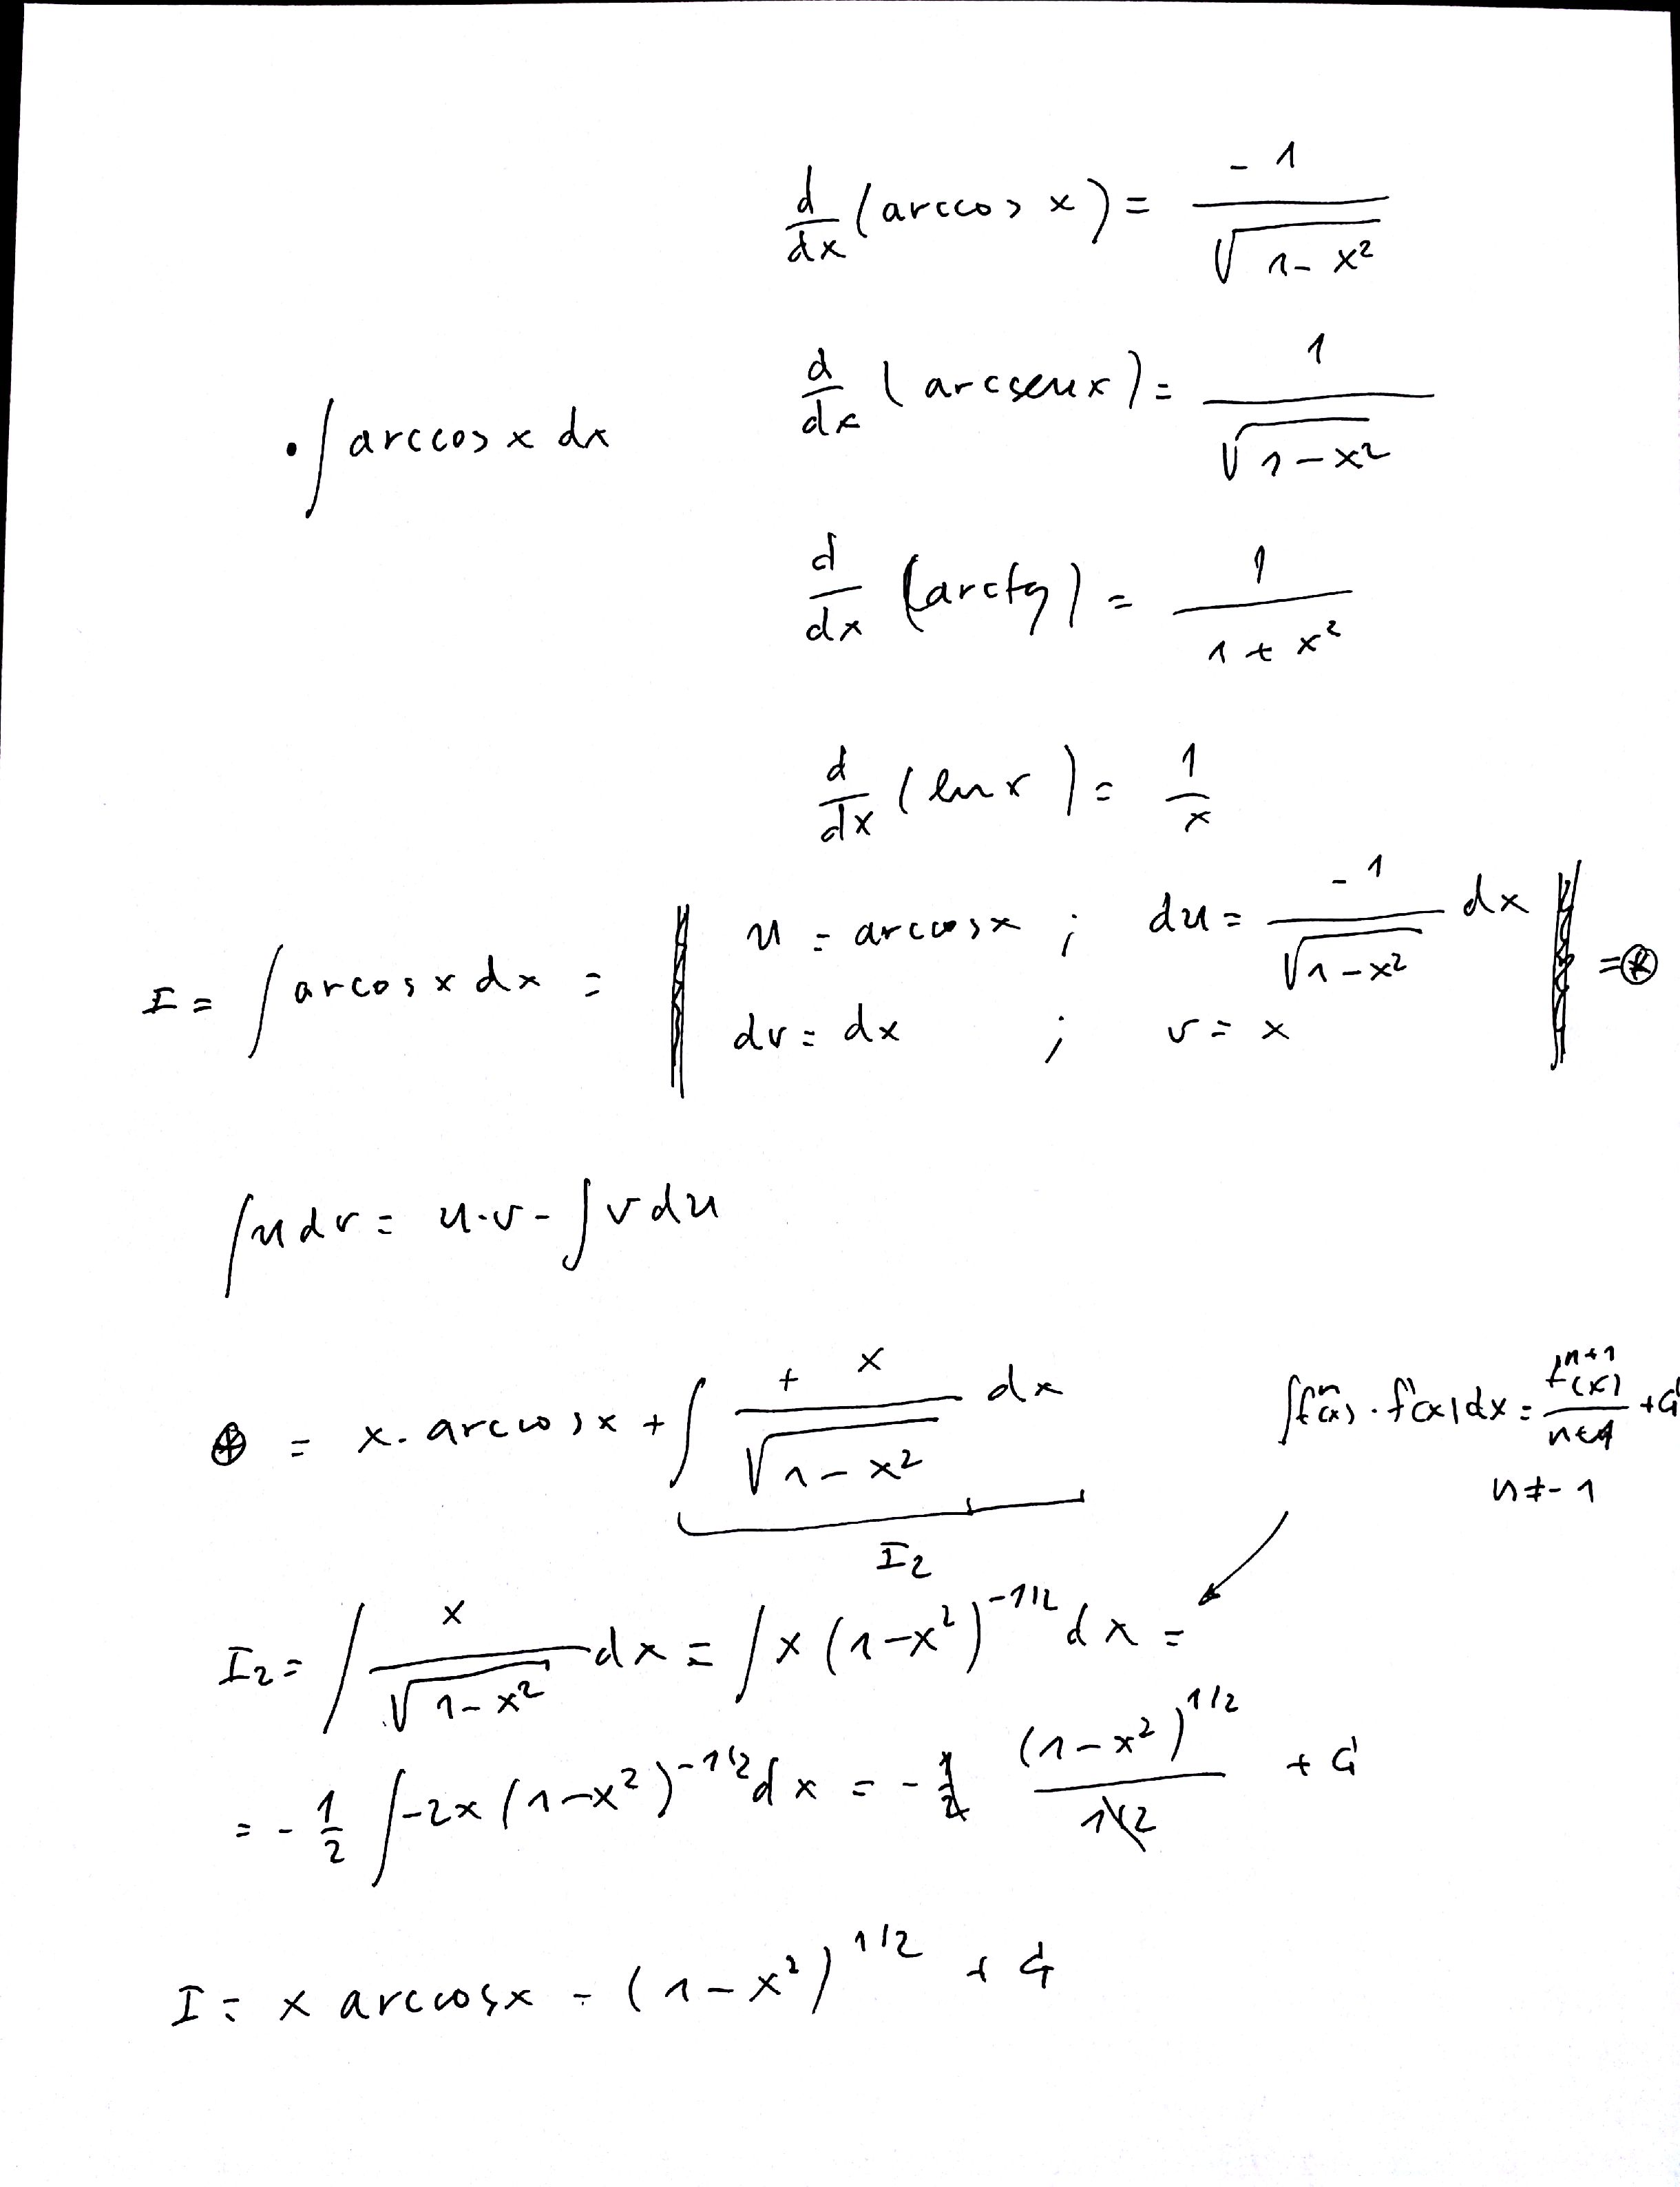 d/dx (arccos x) = -1/√(1-x²)
d/dx (arcsenx) = 1/√(1-x²)
• ∫ arccos x dx
d/dx (arctg) = 1/(1+x²)
d/dx (lnx) = 1/x
I = ∫ arcosx dx = | u = arccosx ; du = -1/√(1-x²) dx | = ⊛
dv = dx ; v = x
∫ u dv = u·v - ∫ v du
⊛ = x · arccosx + ∫ +x/√(1-x²) dx
∫ fⁿ(x) · f'(x) dx = fⁿ⁺¹(x)/(n+1) + C
n ≠ -1
I₂
I₂ = ∫ x/√(1-x²) dx = ∫ x (1-x²)^(-1/2) dx =
= -1/2 ∫ -2x (1-x²)^(-1/2) dx = -1/2 (1-x²)^(1/2)/(1/2) + C
I = x arccosx - (1-x²)^(1/2) + C